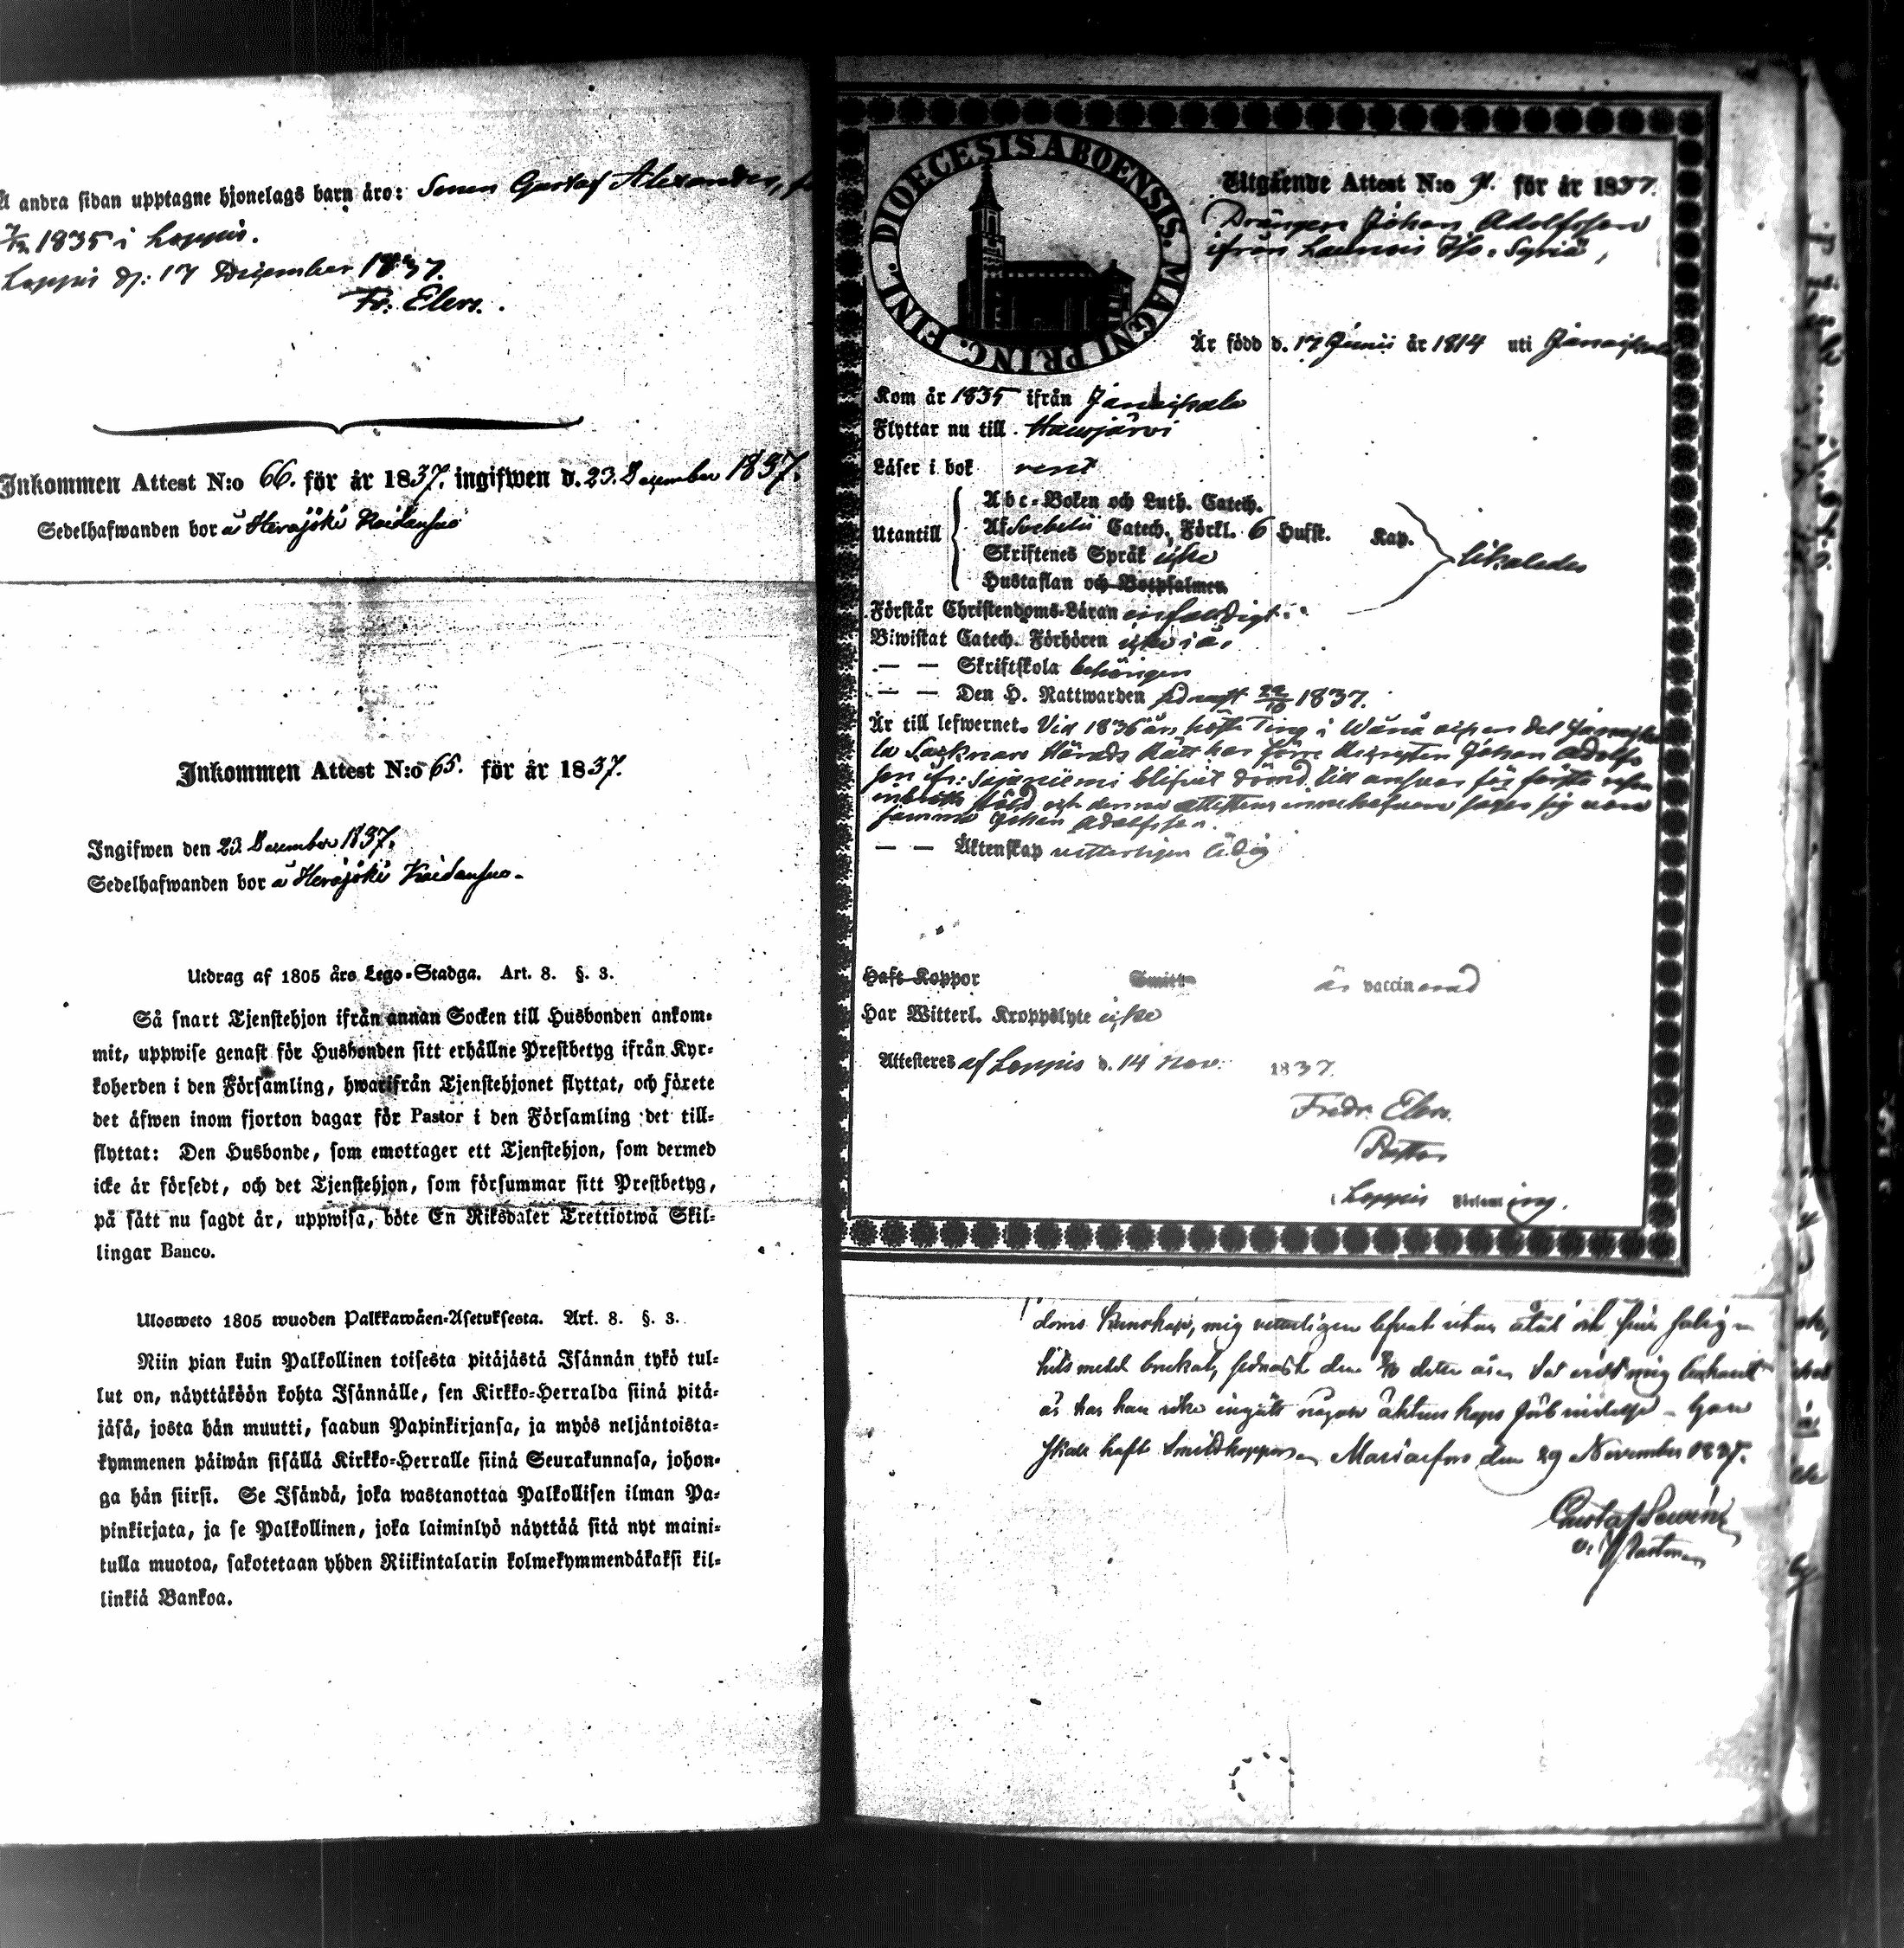 Å andra sidan upptagne hjonelags barn äro: Sonen Gustaf Alexander,
1835 i Loppis.
Loppis d: 17 December 1837.
Fr. Elers.
Inkommen Attest N:o 66. för år 1837. ingifwen d. 23. December 1837.
Sedelhafwanden bor å Herajoki Kaidansuo
Inkommen Attest N:o 65. för år 1837.
Ingifwen den 23 December 1837.
Sedelhafwanden bor å Herajoki Kaidansuo.
Utdrag af 1805 års Lego-Stadga. Art. 8. §. 3.
Så snart Tjenstehjon ifrån annan Socken till Husbonden ankom-
mit, uppwise genast för Husbonden sitt erhållne Prestbetyg ifrån Kyr-
koherden i den Församling, hwarifrån Tjenstehjonet flyttat, och förete
det äfwen inom fjorton dagar för Pastor i den Församling det till-
flyttat: Den Husbonde, som emottager ett Tjenstehjon, som dermed
icke är försedt, och det Tjenstehjon, som försummar sitt Prestbetyg,
på sätt nu sagdt är, uppwisa, böte En Riksdaler Trettiotwå Skil-
lingar Banco.
Ulosweto 1805 wuoden Palkkawäen-Asetuksesta. Art. 8. §. 3.
Niin pian kuin Palkollinen toisesta pitäjästä Isännän tykö tul-
lut on, näyttäköön kohta Isännälle, sen Kirkko-Herralda siinä pitä-
jäsä, josta hän muutti, saadun Papinkirjansa, ja myös neljäntoista-
kymmenen päiwän sisällä Kirkko-Herralle siinä Seurakunnasa, johon-
ga hän siirsi. Se Isändä, joka wastanottaa Palkollisen ilman Pa-
pinkirjata, ja se Palkollinen, joka laiminlyö näyttää sitä nyt maini-
tulla muotoa, sakotetaan yhden Riikintalarin kolmekymmendäkaksi kil-
linkiä Bankoa.
DIOECESIS ABOENSIS. MAGNI PRINC. FINL.
Utgående Attest N:o 91. för år 1837.
Drängen Johan Adolfsson
ifrån Launois Syriä,
Är född d. 17 Junii år 1814 uti Janakkala
Kom år 1835 ifrån Janakkala
Flyttar nu till Hausjärvi
Läser i bok rent
Utantill
Abc-Boken och Luth. Catech.
Af Svebelii Catech. Förkl. 6 Hufst. Kap.
Skriftenes Språk icke
Hustaflan och Botpsalmen
likaledes
Förstår Christendoms-Läran enfaldigt.
Biwistat Catech. Förhören icke i år
— — Skriftskola behörigen
— — Den H. Nattwarden sednast 22/10 1837.
Är till lefwernet. Vid 1836 års höste Ting i Wånå af det Janakka
la Socknars Härads Rätt har förre Johan Adolfs
son fr: blifvit dömd till ansvar för första resan
stöld och denna attestens innehafvare säger sig vara
samma Johan Adolfsson.
— — Äktenskap vetterligen ledig
Haft Koppor Smitt- är vaccinerad
Har Witterl. Kroppslyte icke
Attesteres af Loppis d. 14 Nov. 1837.
Fredr. Elers.
Pastor
i Loppis Församling.
doms kunskap, mig vetterligen lefvat utan åtal och sina salig-
hets medel brukat, sednast den detta år. Det
är har han icke ingått någon äktenskaps förbindelse - han
skall haft Smittkopporne Mariaefors den 29 November 1837.
Gustaf
v: Pastor